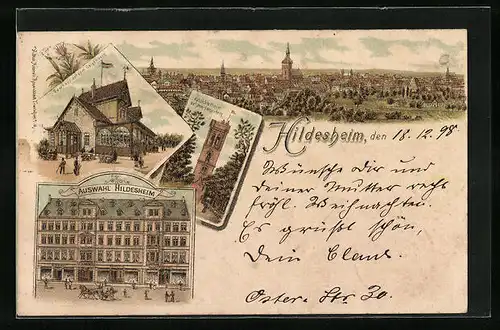 AUSWAHL HILDESHEIM
Hildesheim, den 18.12.98
Wünsche Dir und
deiner Mutter recht
fröhl. Weihnachten.
Es grüßt schön,
Dein
Oster-Str 30.